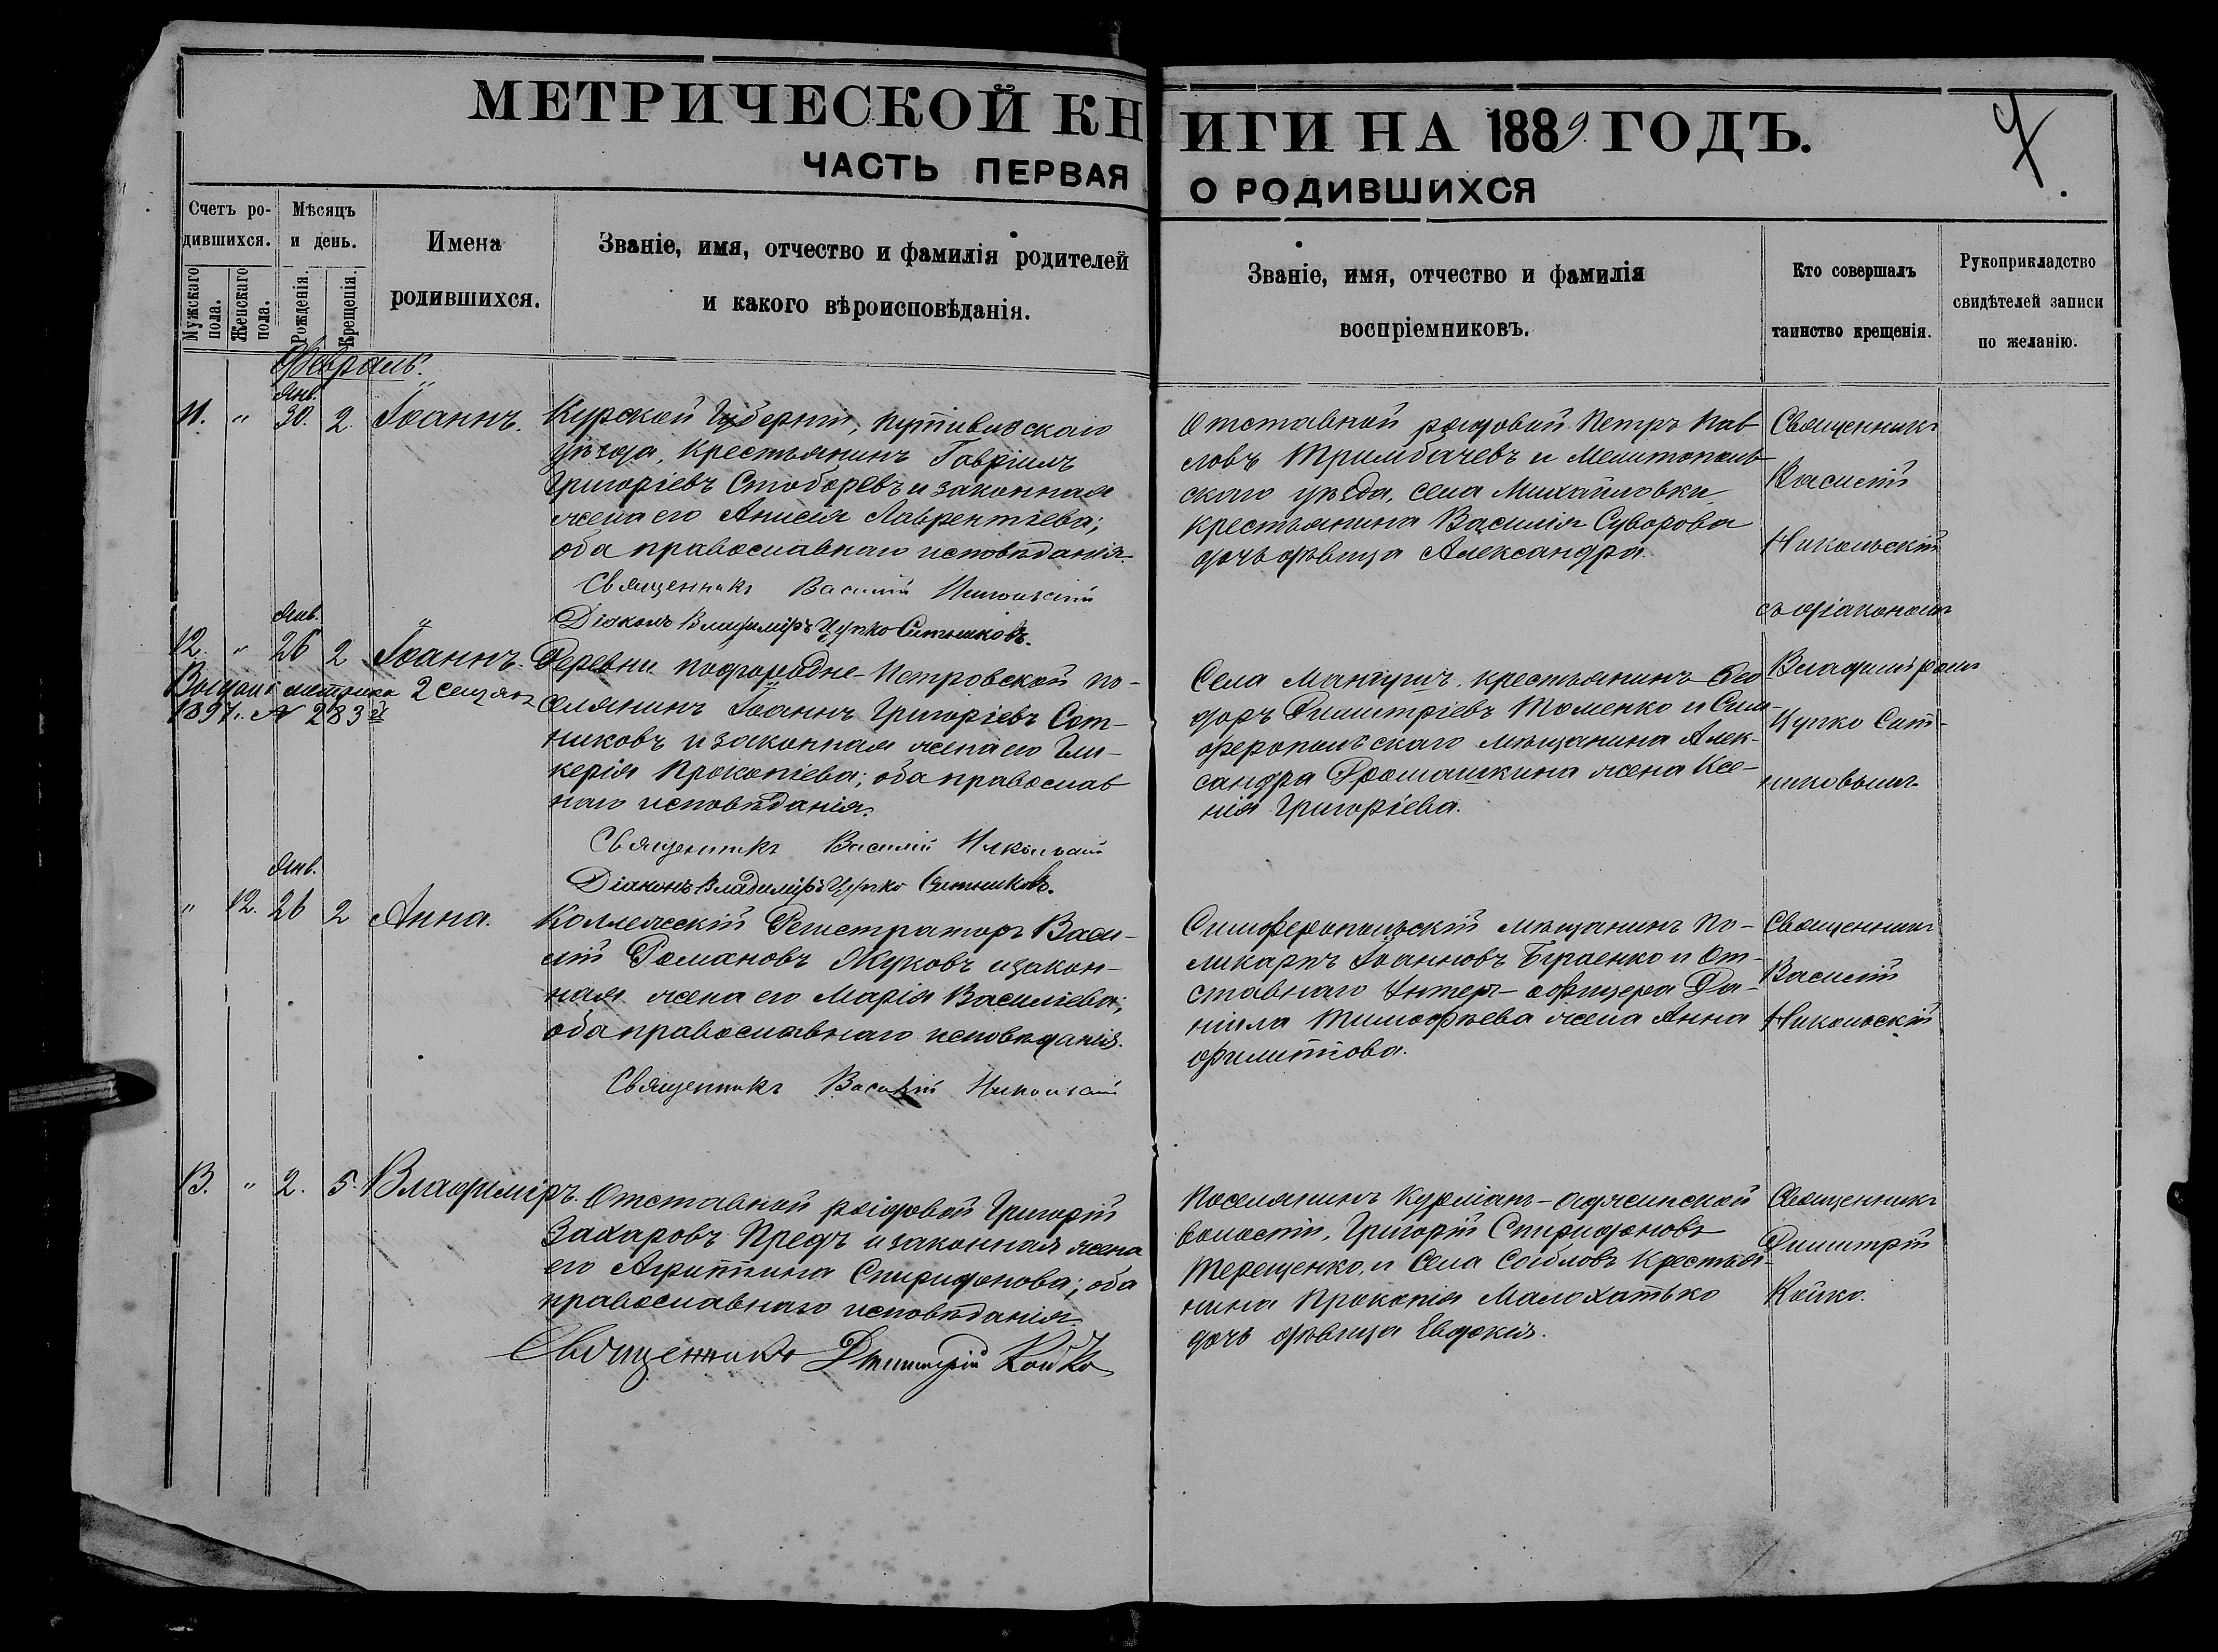 МЕТРИЧЕСКОЙ КНИГИ НА 1889 ГОДЪ.
7.
ЧАСТЬ ПЕРВАЯ О РОДИВШИХСЯ
Счетъ родившихся.
Мужскаго пола.
Женскаго пола.
Мѣсяцъ и день.
Рожденія.
Крещенія.
Имена
родившихся.
Званіе, имя, отчество и фамилія родителей
и какого вѣроисповѣданія.
Званіе, имя, отчество и фамилія
воспріемниковъ.
Кто совершалъ
таинство крещенія.
Рукоприкладство
свидѣтелей записи
по желанію.
Февраль.
Янв.
11. " 30. 2. Іоаннъ.
Курской Губерніи, Путивльскаго
уѣзда, крестьянинъ Гавріилъ
Григоріевъ Стоборевъ и законная
жена его Анисія Лаврентіева;
оба православнаго исповѣданія.
Священникъ Василій Никольскій
Діаконъ Владиміръ Цупко Ситниковъ.
Отставной рядовой Петръ Пав
ловъ Тримбачевъ и Мелитополь
скаго уѣзда, села Михайловки
крестьянина Василія Суворова
дочь дѣвица Александра.
Священникъ
Василій
Никольскій
съ діакономъ
Владиміромъ
Цупко Сит-
никовымъ
Янв.
12. " 26 2 Іоаннъ.
Выдана метрика 2 сентяб
1897г. № 283й
Деревни Подгородне-Петровской по-
селянинъ Іоаннъ Григоріевъ Сот-
никовъ и законная жена его Гли-
керія Прокопіева; оба православ
наго исповѣданія.
Священникъ Василій Никольскій
Діаконъ Владиміръ Цупко Ситниковъ.
Села Мангушъ, крестьянинъ Фео
доръ Димитріевъ Томенко и Сим-
феропольскаго мѣщанина Алек-
сандра Ромашкина жена Ксе-
нія Григоріева.
Янв.
" 12. 26 2 Анна.
Коллежскій Регистраторъ Васи-
лій Романовъ Жуковъ и закон-
ная жена его Марія Василіева;
оба православнаго исповѣданія.
Священникъ Василій Никольскій
Симферопольскій мѣщанинъ По-
ликарпъ Іоанновъ Бураенко и От-
ставнаго Унтеръ-офицера Да-
ніила Тимофѣева жена Анна
Филиппова.
Священникъ
Василій
Никольскій
13. " 2. 5. Владиміръ.
Отставной рядовой Григорій
Захаровъ Предъ и законная жена
его Агриппина Спиридонова; оба
православнаго исповѣданія.
Священникъ Димитрій Койко
Поселянинъ Курманъ-Аджинской
волости, Григорій Спиридоновъ
Терещенко, и Села Сабловъ крестья-
нина Прокопія Малохатько
дочь дѣвица Евдокія.
Священникъ
Димитрій
Койко.